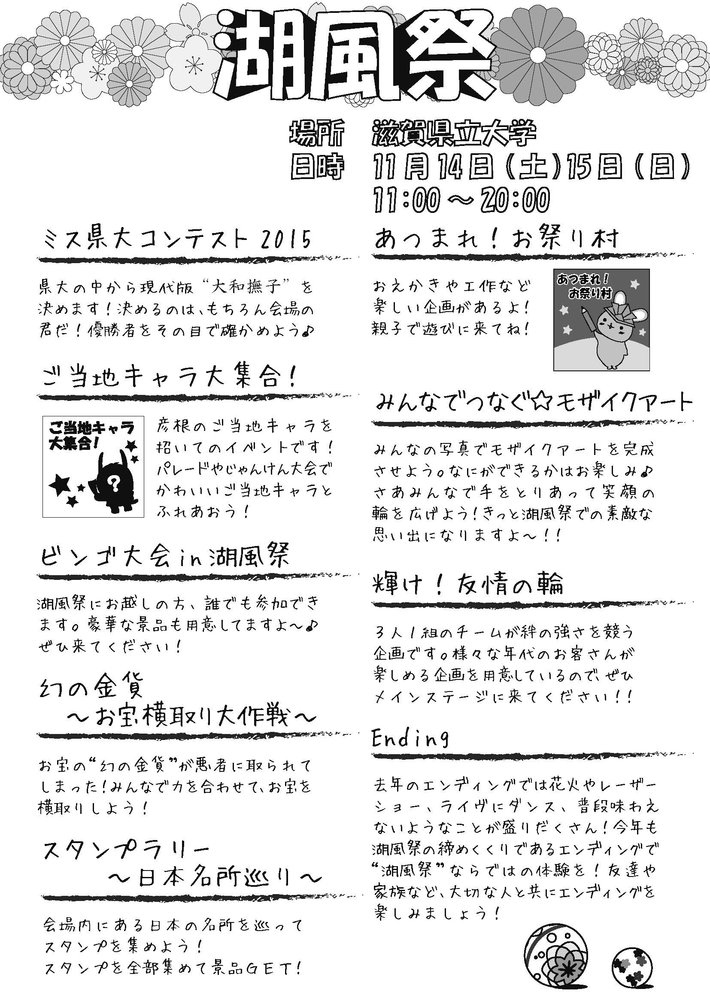 湖風祭
場所 滋賀県立大学
日時 11月14日(土)15日(日)
11:00～20:00
ミス県大コンテスト2015
県大の中から現代版“大和撫子”を
決めます！決めるのは、もちろん会場の
君だ！優勝者をその目で確かめよう♪
ご当地キャラ大集合！
ご当地キャラ
大集合！
?
彦根のご当地キャラを
招いてのイベントです！
パレードやじゃんけん大会で
かわいいご当地キャラと
ふれあおう！
ビンゴ大会in湖風祭
湖風祭にお越しの方、誰でも参加でき
ます。豪華な景品も用意してますよ～♪
ぜひ来てください！
幻の金貨
～お宝横取り大作戦～
お宝の“幻の金貨”が悪者に取られて
しまった！みんなで力を合わせて、お宝を
横取りしよう！
スタンプラリー
～日本名所巡り～
会場内にある日本の名所を巡って
スタンプを集めよう！
スタンプを全部集めて景品GET！
あつまれ！お祭り村
おえかきや工作など
楽しい企画があるよ！
親子で遊びに来てね！
あつまれ！
お祭り村
みんなでつなぐ☆モザイクアート
みんなの写真でモザイクアートを完成
させよう。なにができるかはお楽しみ♪
さあみんなで手をとりあって笑顔の
輪を広げよう！きっと湖風祭での素敵な
思い出になりますよ～！！
輝け！友情の輪
3人1組のチームが絆の強さを競う
企画です。様々な年代のお客さんが
楽しめる企画を用意しているので、ぜひ
メインステージに来てください！！
Ending
去年のエンディングでは花火やレーザー
ショー、ライヴにダンス、普段味わえ
ないようなことが盛りだくさん！今年も
湖風祭の締めくくりであるエンディングで
“湖風祭”ならではの体験を！友達や
家族など、大切な人と共にエンディングを
楽しみましょう！